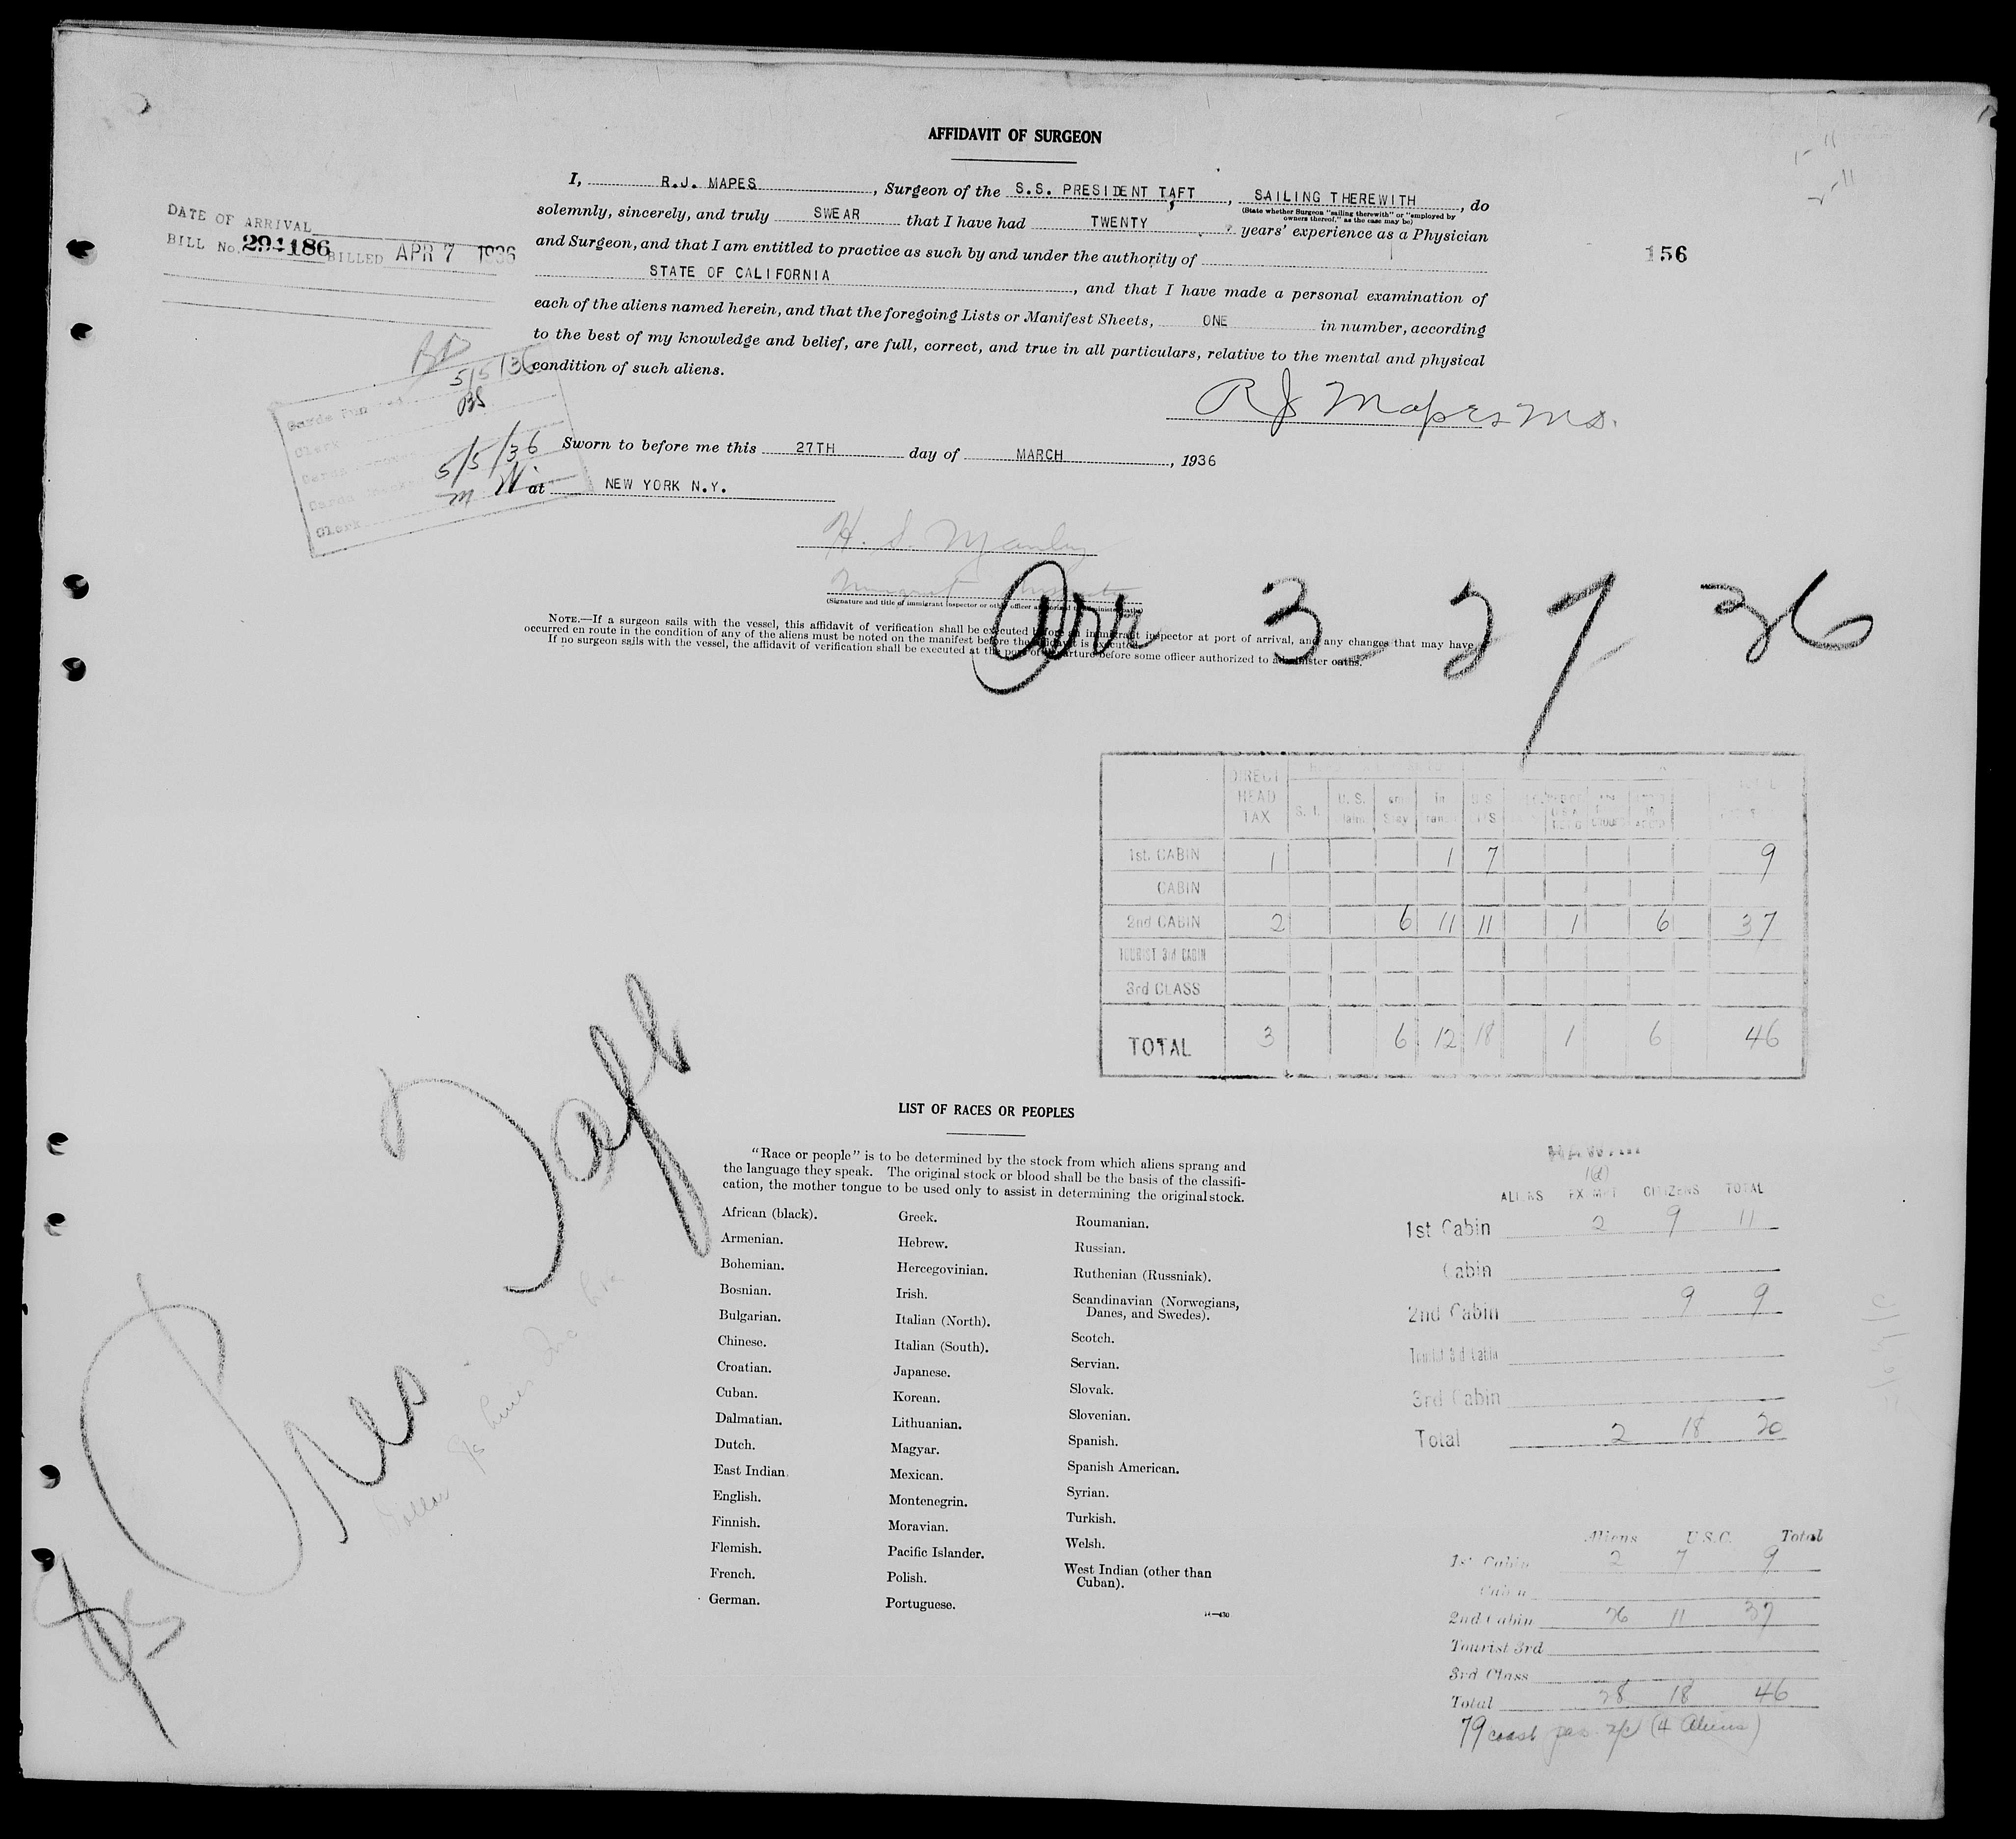 AFFIDAVIT OF SURGEON
I, R.J. MAPES, Surgeon of the S.S. PRESIDENT TAFT, SAILING THEREWITH, do
(State whether Surgeon "sailing therewith" or "employed by owners thereof," as the case may be)
solemnly, sincerely, and truly SWEAR that I have had TWENTY years' experience as a Physician
and Surgeon, and that I am entitled to practice as such by and under the authority of
STATE OF CALIFORNIA, and that I have made a personal examination of
each of the aliens named herein, and that the foregoing Lists or Manifest Sheets, ONE in number, according
to the best of my knowledge and belief, are full, correct, and true in all particulars, relative to the mental and physical
condition of such aliens.
DATE OF ARRIVAL
BILL No. 294186 BILLED APR 7 1936
156
5/5/36
BS
Clerk
5/5/36
Clerk
R J Mapes M.D.
Sworn to before me this 27TH day of MARCH, 1936
at NEW YORK N.Y.
H. S. Manley
(Signature and title of immigrant inspector or other officer authorized to administer oaths)
NOTE.—If a surgeon sails with the vessel, this affidavit of verification shall be executed before an immigrant inspector at port of arrival, and any changes that may have
occurred en route in the condition of any of the aliens must be noted on the manifest before the affidavit is executed.
If no surgeon sails with the vessel, the affidavit of verification shall be executed at the port of departure before some officer authorized to administer oaths.
Arr 3-27 36
DIRECT HEAD TAX S.I. U.S.
1st. CABIN 1 1 7 9
CABIN
2nd CABIN 2 6 11 11 1 6 37
TOURIST 3rd CABIN
3rd CLASS
TOTAL 3 6 12 18 1 6 46
Pres. Taft
LIST OF RACES OR PEOPLES
"Race or people" is to be determined by the stock from which aliens sprang and
the language they speak. The original stock or blood shall be the basis of the classifi-
cation, the mother tongue to be used only to assist in determining the original stock.
African (black).
Armenian.
Bohemian.
Bosnian.
Bulgarian.
Chinese.
Croatian.
Cuban.
Dalmatian.
Dutch.
East Indian.
English.
Finnish.
Flemish.
French.
German.
Greek.
Hebrew.
Hercegovinian.
Irish.
Italian (North).
Italian (South).
Japanese.
Korean.
Lithuanian.
Magyar.
Mexican.
Montenegrin.
Moravian.
Pacific Islander.
Polish.
Portuguese.
Roumanian.
Russian.
Ruthenian (Russniak).
Scandinavian (Norwegians,
Danes, and Swedes).
Scotch.
Servian.
Slovak.
Slovenian.
Spanish.
Spanish American.
Syrian.
Turkish.
Welsh.
West Indian (other than
Cuban).
ALIENS EXEMPT CITIZENS TOTAL
1st Cabin 2 9 11
Cabin
2nd Cabin 9 9
Tourist 3rd Cabin
3rd Cabin
Total 2 18 20
Aliens U.S.C. Total
1st Cabin 2 7 9
Cabin
2nd Cabin 26 11 37
Tourist 3rd
3rd Class
Total 28 18 46
79 coast pas. (4 Aliens)